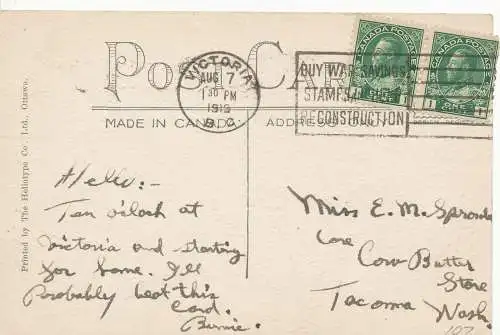 Post Card
VICTORIA
AUG 7
1 30 PM
1919
B. C.
BUY WAR SAVINGS
STAMPS
RECONSTRUCTION
CANADA POSTAGE
CANADA POSTAGE
MADE IN CANADA
ADDRESS ONLY
Printed by The Heliotype Co., Ltd., Ottawa.
Hello:-
Ten o'clock at
Victoria and starting
for home. I'll
Probably beat this
Card.
Miss E. M.
Care
Cow Butter
Store
Tacoma Wash.